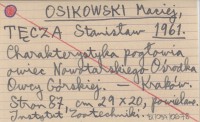 OSIKOWSKI Maciej,
TĘCZA Stanisław 1961.
Charakterystyka pogłowia
owiec Nowotarskiego Ośrodka
Owcy Górskiej. — Kraków.
Stron 87, cm 29 x 20, powielano.
Instytut Zootechniki.